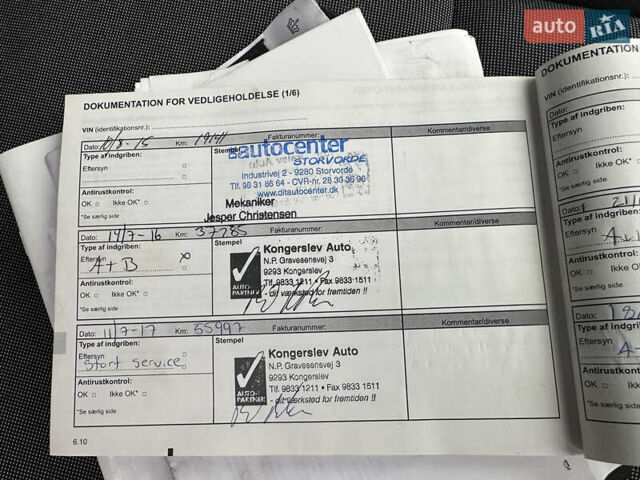 auto RIA
DOKUMENTATION FOR VEDLIGEHOLDELSE (1/6)
VIN (identifikationsnr.):
Dato: 10/8-15 Km: 19141 Fakturanummer: Kommentar/diverse
Type af indgriben:
Eftersyn
Stempel
autocenter
STORVORDE
Industrivej 2 - 9280 Storvorde
Tlf. 98 31 86 64 - CVR-nr. 28 30 36 96
www.ditautocenter.dk
Mekaniker
Jesper Christensen
Antirustkontrol:
OK Ikke OK*
*Se særlig side
Dato: 14/7-16 Km: 37285 Fakturanummer: Kommentar/diverse
Type af indgriben:
Eftersyn x
A+B
Stempel
AUTO-PARTNER
Kongerslev Auto
N.P. Gravesensvej 3
9293 Kongerslev
Tlf. 9833 1211 • Fax 9833 1511
- dit værksted for fremtiden !!
Antirustkontrol:
OK Ikke OK*
*Se særlig side
Dato: 11/7-17 Km: 55997 Fakturanummer: Kommentar/diverse
Type af indgriben:
Eftersyn
Stort service
Stempel
AUTO-PARTNER
Kongerslev Auto
N.P. Gravesensvej 3
9293 Kongerslev
Tlf. 9833 1211 • Fax 9833 1511
- dit værksted for fremtiden !!
Antirustkontrol:
OK Ikke OK*
*Se særlig side
6.10
DOKUMENTATION
VIN (identifikationsnr.):
Dato:
Type af indgriben:
Eftersyn
Antirustkontrol:
OK Ikke OK*
*Se særlig side
Dato:
Type af indgriben:
Eftersyn
Antirustkontrol:
OK Ikke OK*
*Se særlig side
Dato:
Type af indgriben:
Eftersyn
Antirustkontrol:
OK Ikke OK*
*Se særlig side